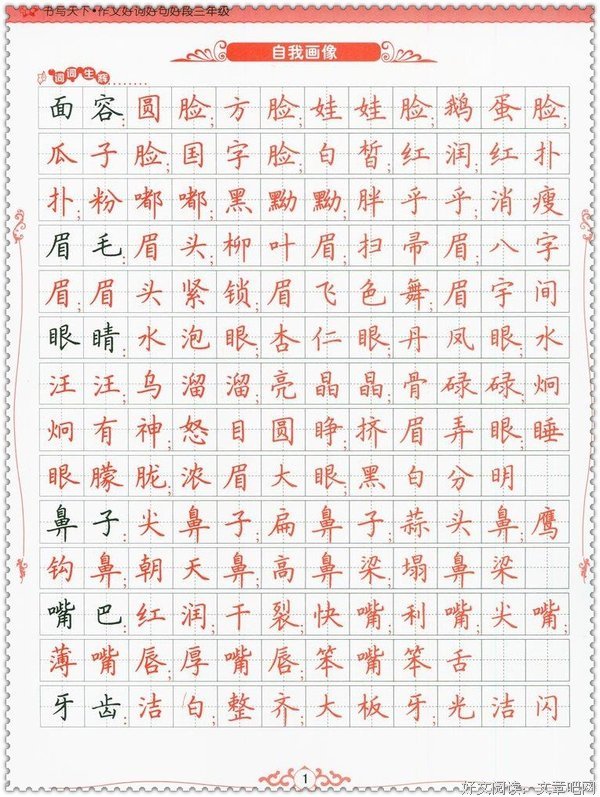 书写天下•作文好词好句好段三年级
自我画像
词词生辉
面容:圆脸;方脸;娃娃脸;鹅蛋脸;
瓜子脸;国字脸;白皙;红润;红扑
扑;粉嘟嘟;黑黝黝;胖乎乎;消瘦
眉毛:眉头;柳叶眉;扫帚眉;八字
眉;眉头紧锁;眉飞色舞;眉宇间
眼睛:水泡眼;杏仁眼;丹凤眼;水
汪汪;乌溜溜;亮晶晶;骨碌碌;炯
炯有神;怒目圆睁;挤眉弄眼;睡
眼朦胧;浓眉大眼;黑白分明
鼻子:尖鼻子;扁鼻子;蒜头鼻;鹰
钩鼻;朝天鼻;高鼻梁;塌鼻梁
嘴巴:红润;干裂;快嘴;利嘴;尖嘴;
薄嘴唇;厚嘴唇;笨嘴笨舌
牙齿:洁白;整齐;大板牙;光洁闪
1
好文阅读，文章吧网